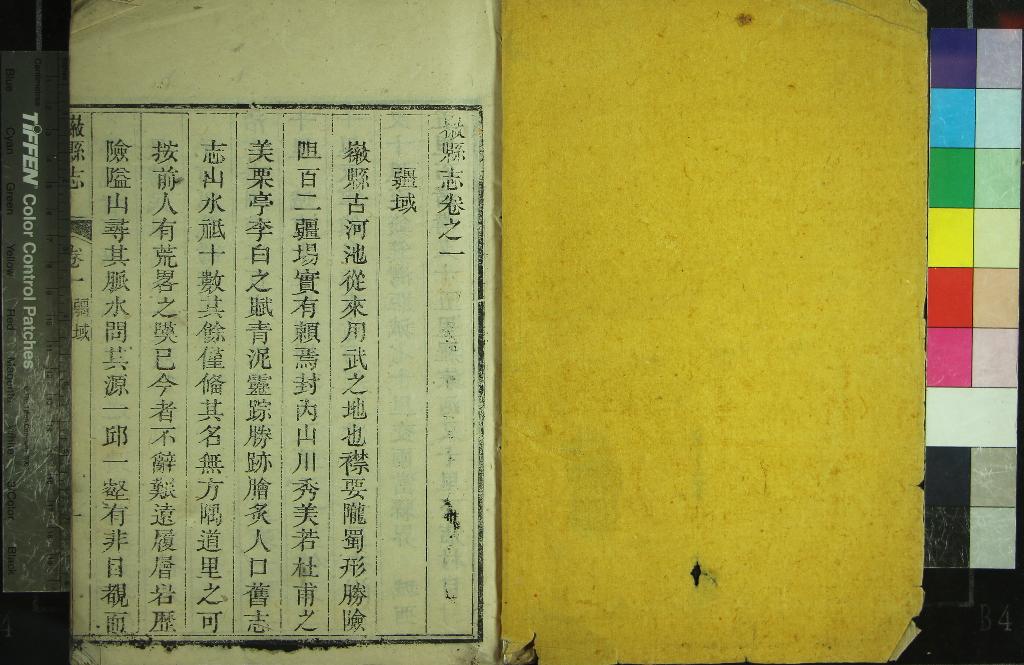 徽縣志卷之一
疆域
徽縣古河池從來用武之地也襟要隴蜀形勝險
阻百二疆場實有賴焉封內山川秀美若杜甫之
美栗亭李白之賦青泥靈踪勝跡膾炙人口舊志
志山水祗十數其餘僅僃其名無方隅道里之可
按前人有荒畧之與已今者不辭艱遠履層岩歷
險隘山尋其脈水問其源一邱一壑有非目覩而
徽縣志
卷一
疆域
一
TIFFEN Color Control Patches
Blue
Cyan
Green
Yellow
Red
Magenta
White
3/Color
B4